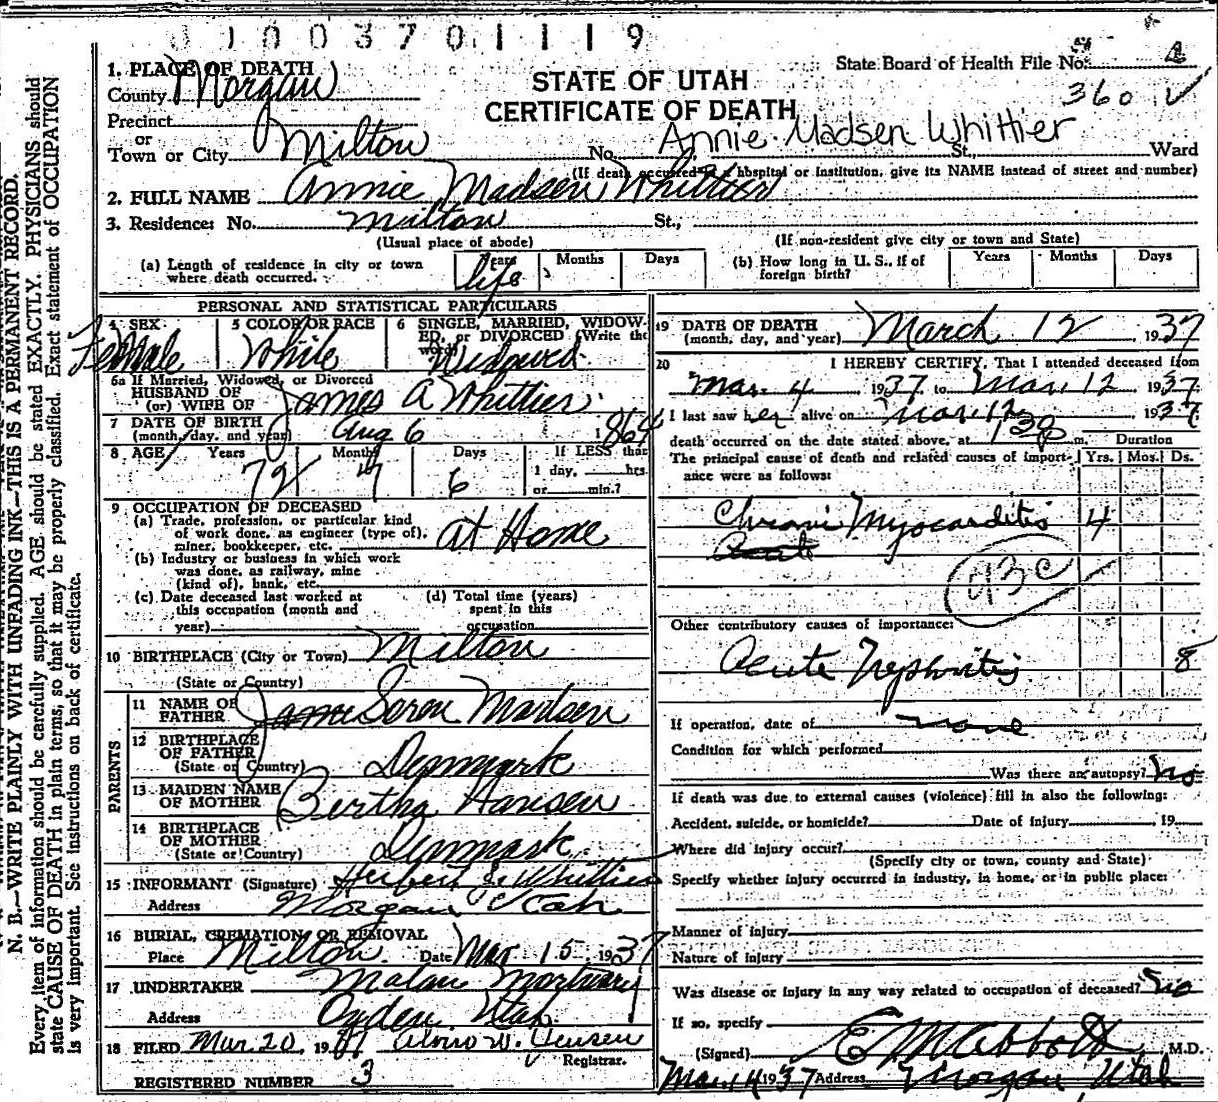 0 1 0 0 3 7 0 1 1 1 9
State Board of Health File No. 4
360 V
STATE OF UTAH
CERTIFICATE OF DEATH
1. PLACE OF DEATH
County Morgan
Precinct
or
Town or City Milton No. Annie Madsen Whittier St., Ward
(If death occurred in a hospital or institution, give its NAME instead of street and number)
2. FULL NAME Annie Madsen Whittier
3. Residence: No. Milton St.,
(Usual place of abode) (If non-resident give city or town and State)
(a) Length of residence in city or town where death occurred. Years life Months Days
(b) How long in U. S., if of foreign birth? Years Months Days
PERSONAL AND STATISTICAL PARTICULARS
4 SEX Female
5 COLOR OR RACE White
6 SINGLE, MARRIED, WIDOWED, or DIVORCED (Write the word) Widowed
6a If Married, Widowed, or Divorced
HUSBAND OF
(or) WIFE OF James A Whittier
7 DATE OF BIRTH
(month, day, and year) Aug 6 1864
8 AGE Years 72 Months 7 Days 6 If LESS than
1 day, hrs.
or min.?
9 OCCUPATION OF DECEASED
(a) Trade, profession, or particular kind
of work done, as engineer (type of),
miner, bookkeeper, etc. at Home
(b) Industry or business in which work
was done, as railway, mine
(kind of), bank, etc.
(c) Date deceased last worked at
this occupation (month and
year)
(d) Total time (years)
spent in this
occupation
10 BIRTHPLACE (City or Town) Milton
(State or Country)
PARENTS
11 NAME OF
FATHER Soren Madsen
12 BIRTHPLACE
OF FATHER
(State or Country) Denmark
13 MAIDEN NAME
OF MOTHER Bertha Hansen
14 BIRTHPLACE
OF MOTHER
(State or Country) Denmark
15 INFORMANT (Signature) Herbert L. Whittier
Address Morgan Utah
16 BURIAL, CREMATION OR REMOVAL
Place Milton Date Mar 15, 1937
17 UNDERTAKER Malan Mortuary
Address Ogden Utah
18 FILED Mar 20, 19 W. Jensen
Registrar.
REGISTERED NUMBER 3
19 DATE OF DEATH
(month, day, and year) March 12 1937
20 I HEREBY CERTIFY, That I attended deceased from
Mar. 4 1937 to Mar. 12 1937
I last saw her alive on Mar. 12 1937
death occurred on the date stated above, at 130p m. Duration
The principal cause of death and related causes of importance were as follows: Yrs. Mos. Ds.
Chronic Myocarditis 4
Acute
93c
Other contributory causes of importance:
Acute Nephritis 8
If operation, date of none
Condition for which performed
Was there an autopsy? No
If death was due to external causes (violence) fill in also the following:
Accident, suicide, or homicide? Date of injury 19
Where did injury occur?
(Specify city or town, county and State)
Specify whether injury occurred in industry, in home, or in public place:
Manner of injury
Nature of injury
Was disease or injury in any way related to occupation of deceased? No
If so, specify
(Signed) E M Abbott M.D.
Mar. 14 1937 Address Morgan Utah
N. B.—WRITE PLAINLY WITH UNFADING INK—THIS IS A PERMANENT RECORD.
Every item of information should be carefully supplied. AGE should be stated EXACTLY. PHYSICIANS should
state CAUSE OF DEATH in plain terms, so that it may be properly classified. Exact statement of OCCUPATION
is very important. See instructions on back of certificate.